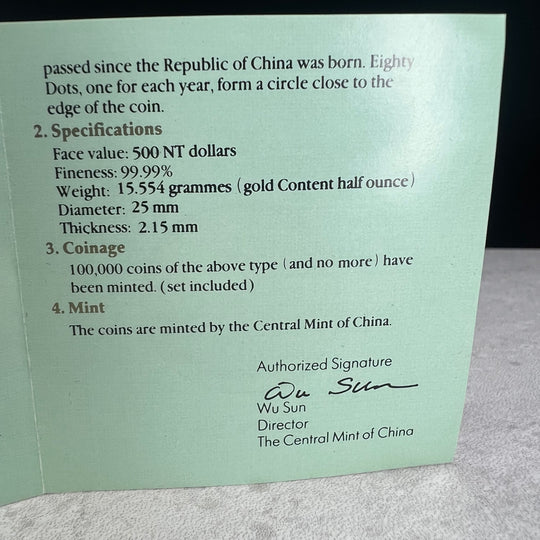 passed since the Republic of China was born. Eighty
Dots, one for each year, form a circle close to the
edge of the coin.
2. Specifications
Face value: 500 NT dollars
Fineness: 99.99%
Weight: 15.554 grammes (gold Content half ounce)
Diameter: 25 mm
Thickness: 2.15 mm
3. Coinage
100,000 coins of the above type (and no more) have
been minted. (set included)
4. Mint
The coins are minted by the Central Mint of China.
Authorized Signature
Wu Sun
Wu Sun
Director
The Central Mint of China